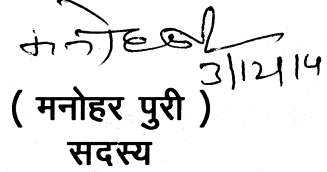 मनोहर
3/12/14
( मनोहर पुरी )
सदस्य